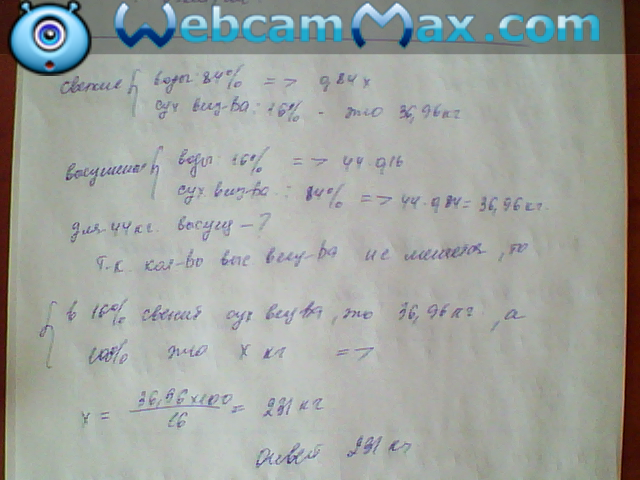 WebcamMax.com
свежие { воды: 84% => 0,84х
сух вещ-ва: 16% - это 36,96 кг
высушеные { воды 16% => 44·0,16
сух вещ-ва: 84% => 44·0,84 = 36,96 кг.
для 44 кг. высуш - ?
т.к. кол-во выс вещ-ва не меняется, то
{ в 16% свежий сух вещ ва, это 36,96 кг, а
100% это х кг =>
х = 36,96х100 / 16 = 231 кг
Ответ 231 кг